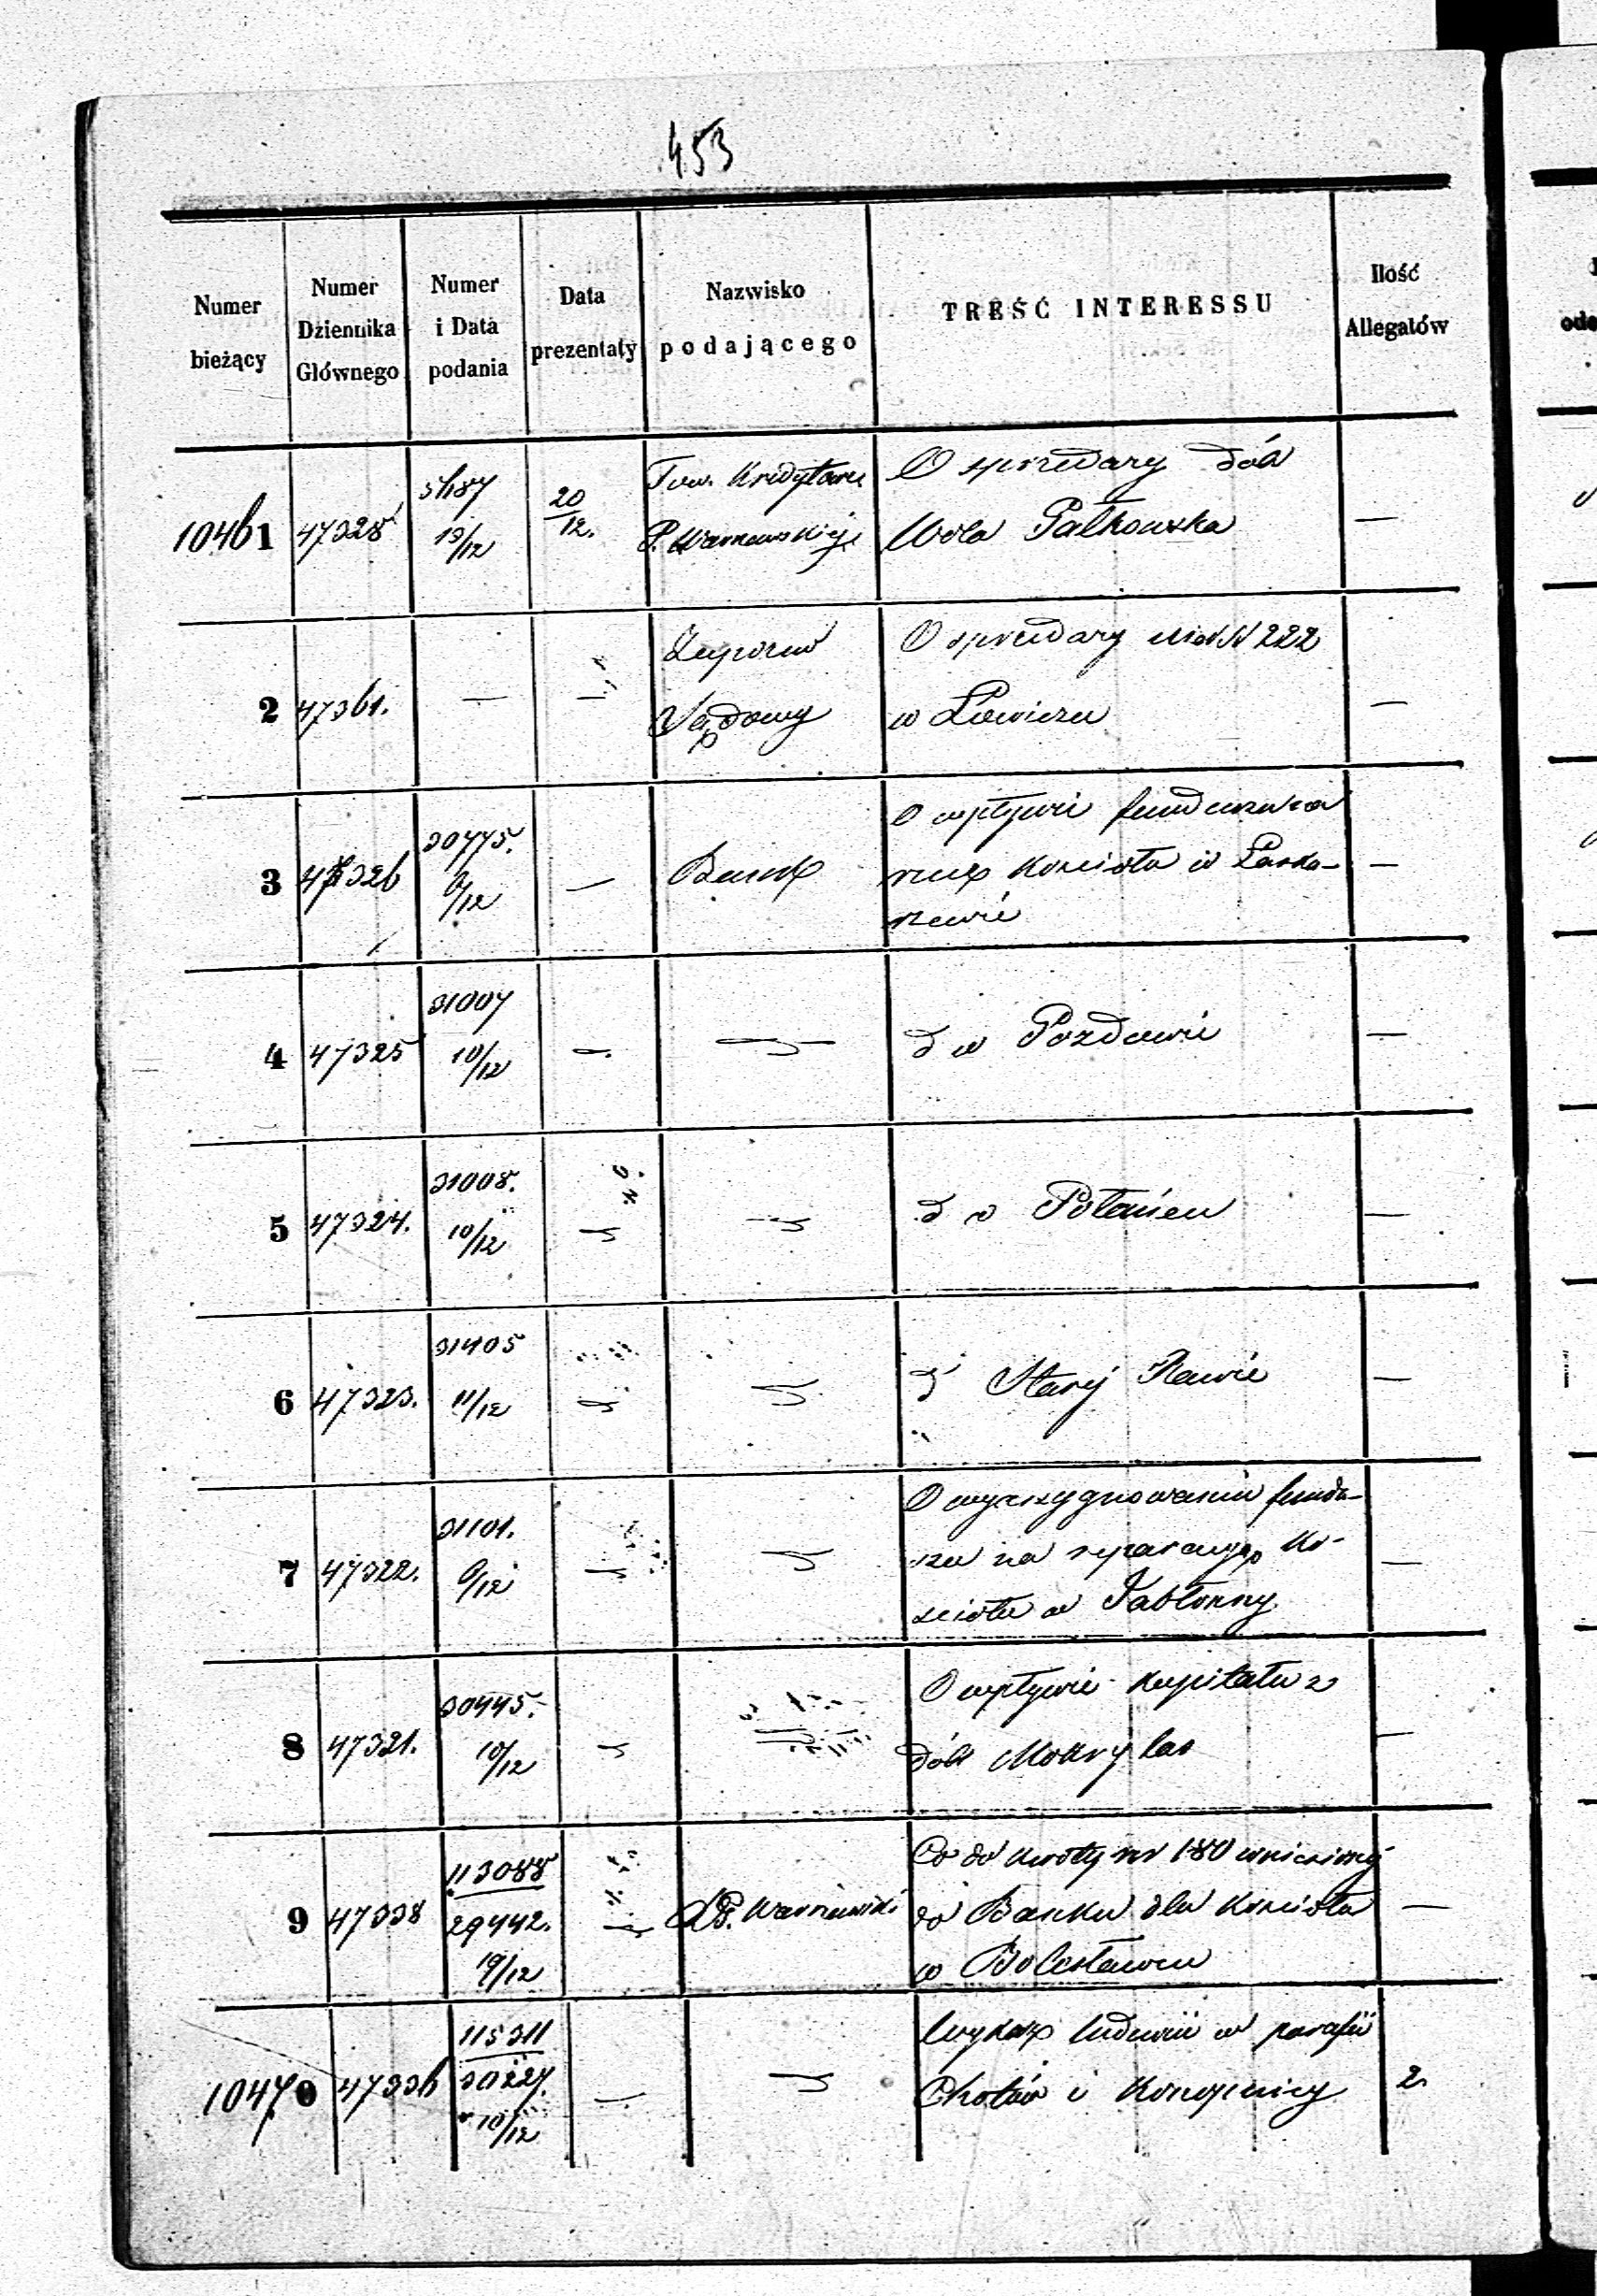 453
Numer bieżący
Numer Dziennika Głównego
Numer i Data podania
Data prezentaty
Nazwisko podającego
TREŚĆ INTERESSU
Ilość Allegatów
10461 47328 13/12 20/12. Tow. Kredytowe O sprzedaży dóbr
P. Warszawskiej Wola Pałkowska —
2 47361. — — O sprzedaży N 222
Sądowy w Łowiczu —
3 47326 30775. 9/12 — Bank O wpływie funduszu na
rzecz Kościoła w Parko-
szewie —
4 47325 31007 10/12 — — d w Pozdowie —
5 47324. 31008. 10/12 — — d w Połańcu —
6 47323. 31405 11/12 — — d Starej Rawie —
7 47322. 31101. 9/12 — — O wyasygnowaniu fundu-
szu na reparacyą Ko-
ścioła w Jabłonny —
8 47321. 30445. 10/12 — — O wpływie kapitału z
dóbr Mokry las —
9 47338 113088 29442. 19/12 — Warszawski Co do kwoty rs 180 wniesionej
do Banku dla Kościoła —
w Bolesławcu
10470 47336 115311 30227. 10/12 — — Wykaz w parafii
Chotów i Konopnicy 2.